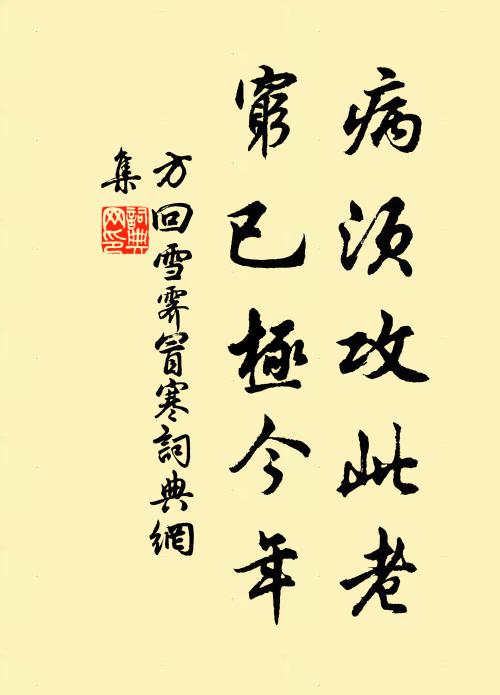 病須攻此老
窮已極今年
方回雪霽冒寒詞典網
集
詞典
网印